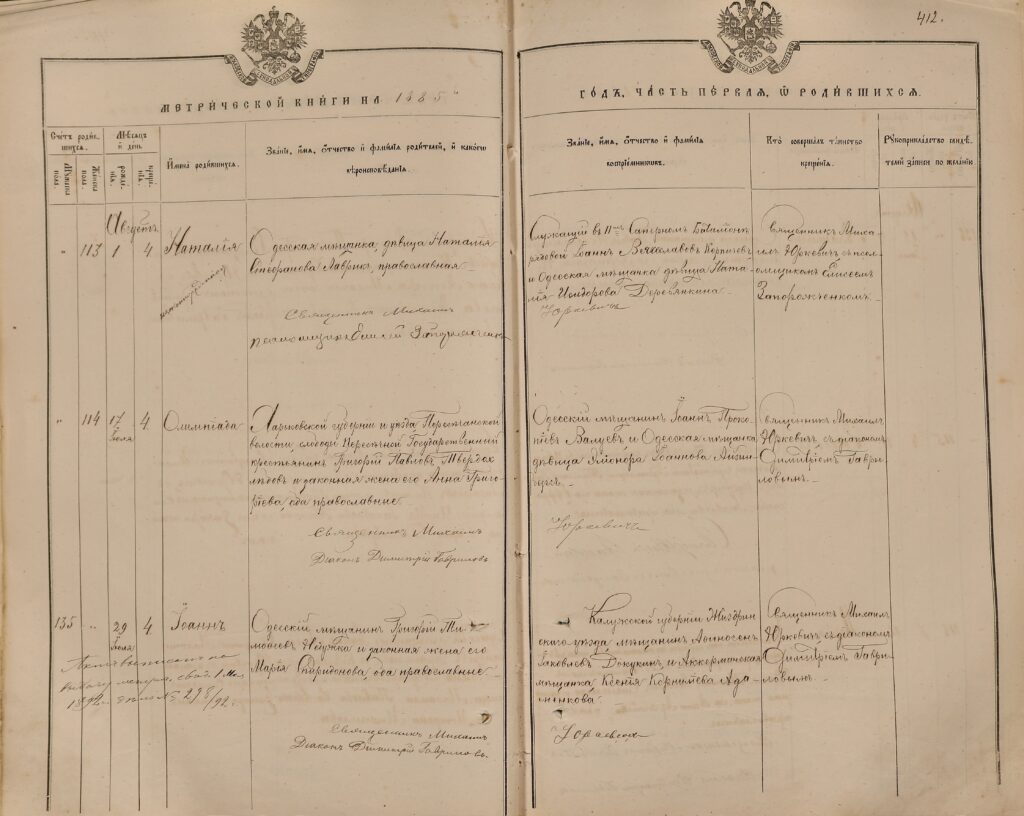 412.
МЕТРИ́ЧЕСКОЙ КНИ́ГИ НА 1885
ГО́ДЪ, ЧА́СТЬ ПЕ́РВАЯ, Ѿ РОДИ́ВШИХСЯ.
Сче́тъ роди́вшихся.
Мѣ́сяцъ и день
Му́жеска пола.
Же́нска пола.
рожде́нїя.
креще́нїя.
И́мена роди́вшихся.
Зва́нїе, и́мя, ѻ́тчество и фами́лїя роди́телей, и како́гѡ
вѣроисповѣ́данїя.
Зва́нїе, и́мя, ѻ́тчество и фами́лїя
воспрїе́мниковъ.
Кто̀ соверша́лъ та́инство
креще́нїя.
Рукоприкла́дство свидѣ́телей за́писи по жела́нїю
Августъ
" 113 1 4 Наталія
Одесская мѣщанка, дѣвица Наталія
Стефанова Лаврик, православная
Священникъ Михаилъ
Служащій въ 11мъ Саперномъ Баталіонѣ
рядовой Іоаннъ
и Одесская мѣщанка дѣвица Ната-
лія Исидорова Деревянкина
Юркевичъ
Священникъ Миха-
илъ Юркевичъ съ псало-
мщикомъ Елисеемъ
Запорожченкомъ.
" 114 17 Іюля 4 Олимпіада
Харьковской губерніи и уѣзда Пересѣчанской
волости, слободы Пересѣчной Государственный
крестьянинъ Григорій Павловъ Твердох
лѣбовъ и законная жена его Анна Григо-
рьева, оба православные
Священникъ Михаилъ
Діаконъ Димитрій Гавриловъ
Одесскій мѣщанинъ Іоаннъ Проко-
піевъ Валуевъ и Одесская мѣщанка,
дѣвица Элеонора Іоаннова
Юркевичъ
Священникъ Михаилъ
Юркевичъ съ діакономъ
Димитріемъ Гаври-
ловымъ
135 " 29 Іюля 4 Іоаннъ
Одесскій мѣщанинъ Григорій Ти-
моѳеевъ и законная жена его
Марія Спиридонова, оба православные.
1892 г. за № 218/92.
Священникъ Михаилъ
Діаконъ Димитрій Гавриловъ.
Калужской губерніи Жиздрин
скаго уѣзда, мѣщанинъ
Яковлевъ Докукинъ, и Аккерманская
мѣщанка Ксенія Корнилѣева Ада-
менкова
Юркевичъ
Священникъ Михаилъ
Юркевичъ съ діакономъ
Димитріемъ Гаври-
ловымъ